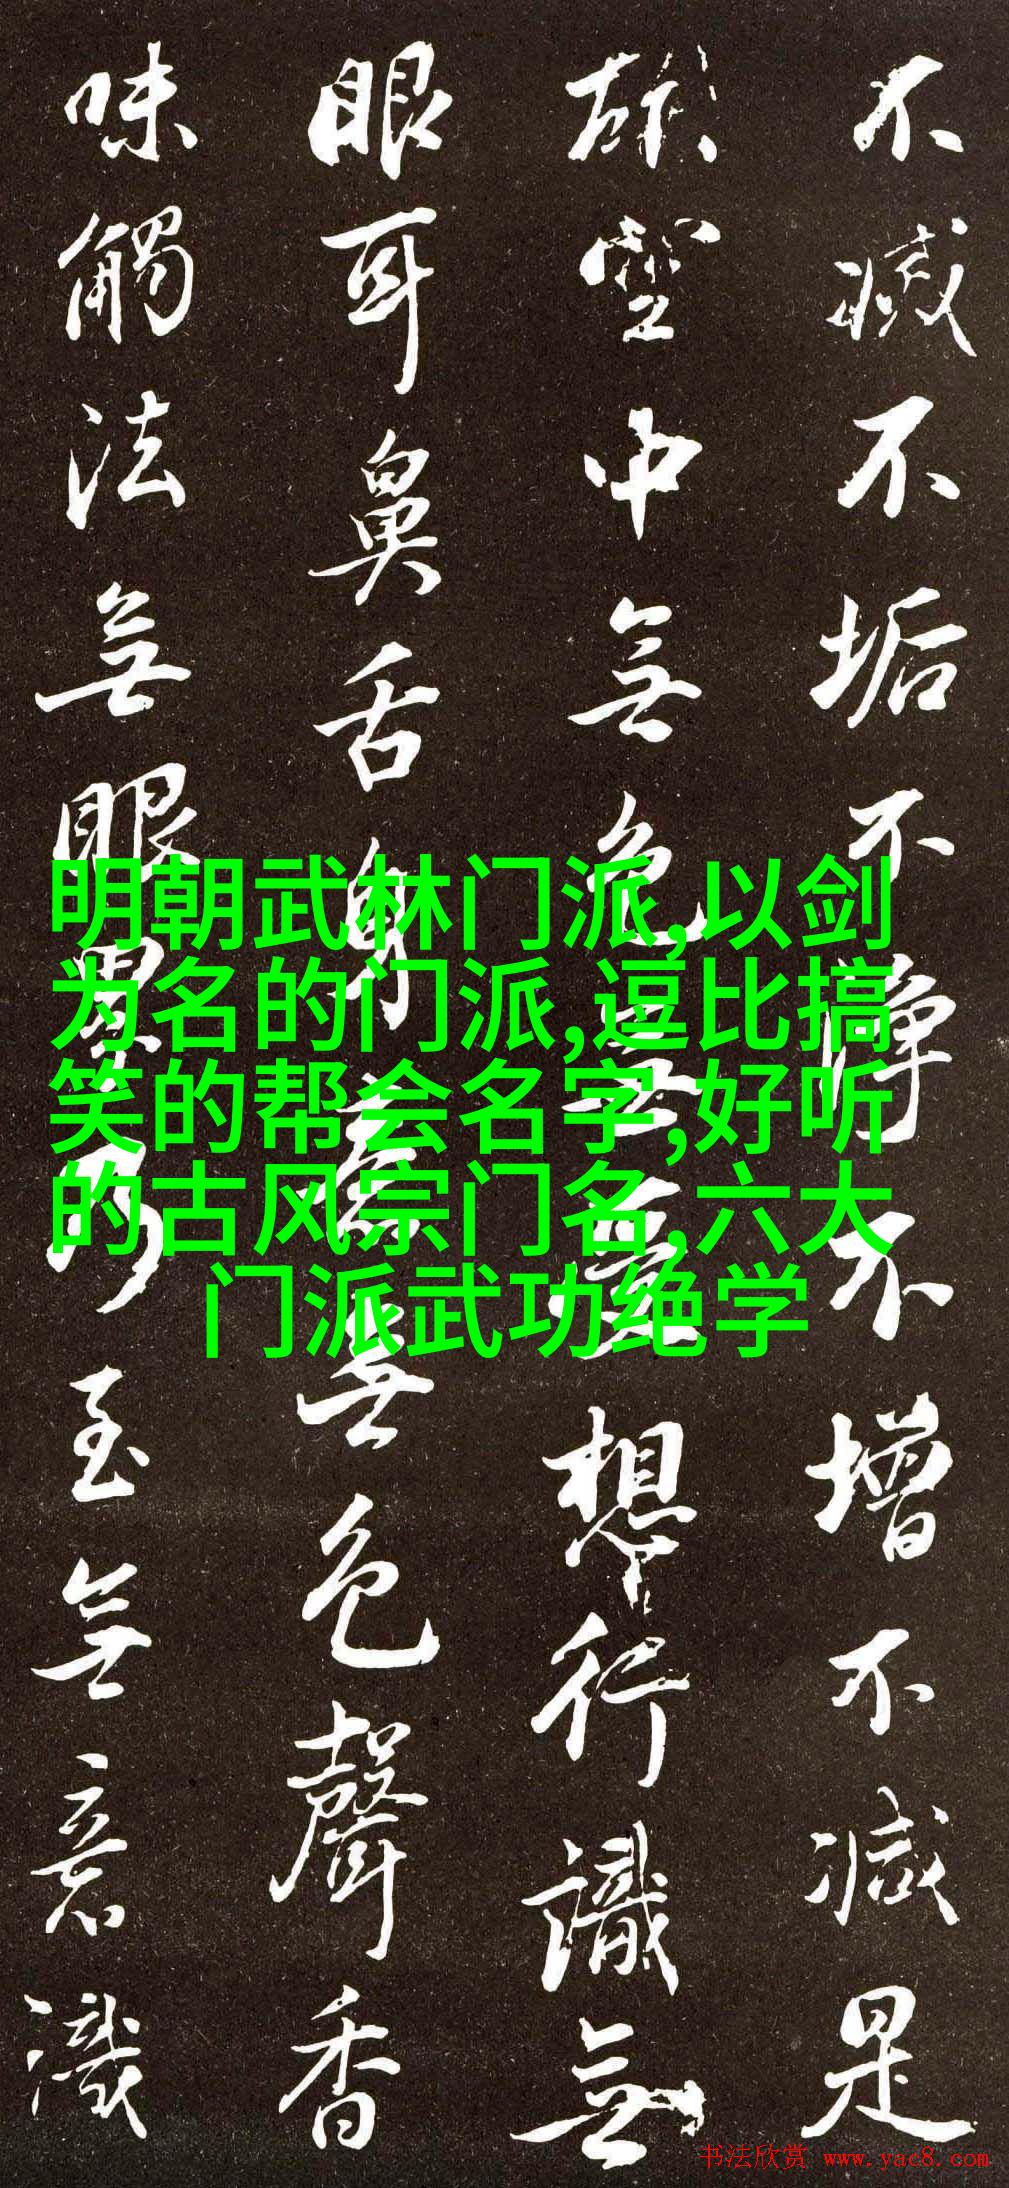 不滅不垢不淨不增不減是
故空中無色無受想行識無
眼耳鼻舌身意無色聲香
味觸法無眼界乃至無意識
明朝武林门派,以剑
为名的门派,逗比搞
笑的帮会名字,好听
的古风宗门名,六大
门派武功绝学
书法欣赏 www.yac8.com